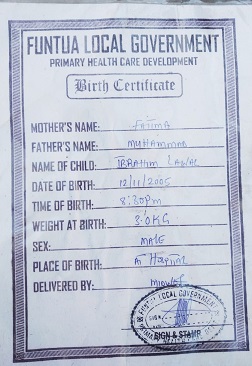 FUNTUA LOCAL GOVERNMENT
PRIMARY HEALTH CARE DEVELOPMENT
Birth Certificate
MOTHER'S NAME: FATIMA
FATHER'S NAME: MUHAMMAD
NAME OF CHILD: IBRAHIM LAWAL
DATE OF BIRTH: 12/11/2005
TIME OF BIRTH: 8:30pm
WEIGHT AT BIRTH: 3.0KG
SEX: MALE
PLACE OF BIRTH:
DELIVERED BY:
FUNTUA LOCAL GOVERNMENT
SIGN & STAMP